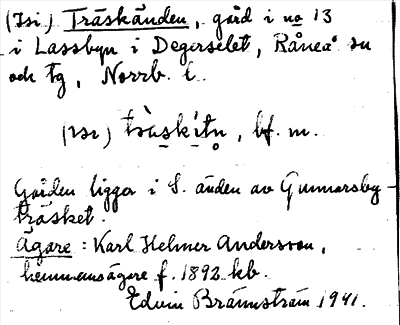 (Isi) Träskänden, gård i no 13
i Lassbyn i Degerselet, Råneå sn
och tg, Norrb. l.
bf. m.
Gården ligger i S. änden av Gunnarsby-
träsket.
Ägare: Karl Helmer Andersson,
hemmansägare f. 1892 kb.
Edvin Brännström 1941.